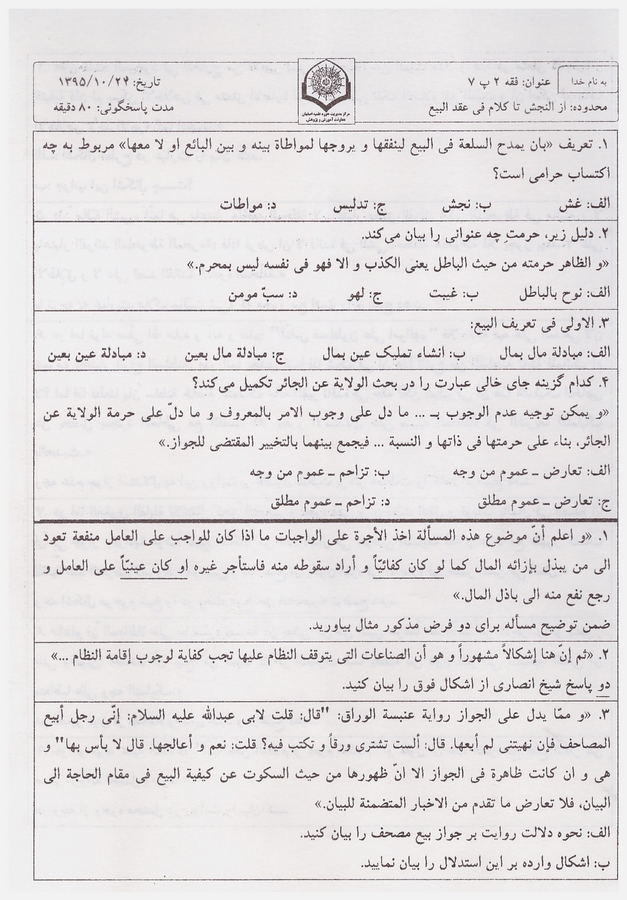 به نام خدا
عنوان: فقه ۲ پ ۷
محدوده: از النجش تا کلام فی عقد البیع
تاریخ: ۱۳۹۵/۱۰/۲۴
مدت پاسخگوئی: ۸۰ دقیقه
مرکز مدیریت حوزه علمیه اصفهان
معاونت آموزش و پژوهش
۱. تعریف «بان یمدح السلعة فی البیع لینفقها و یروجها لمواطاة بینه و بین البائع او لا معها» مربوط به چه
اکتساب حرامی است؟
الف: غش ب: نجش ج: تدلیس د: مواطات
۲. دلیل زیر، حرمت چه عنوانی را بیان می‌کند.
«و الظاهر حرمته من حیث الباطل یعنی الکذب و الا فهو فی نفسه لیس بمحرم.»
الف: نوح بالباطل ب: غیبت ج: لهو د: سبّ مومن
۳. الاولی فی تعریف البیع:
الف: مبادلة مال بمال ب: انشاء تملیک عین بمال ج: مبادلة مال بعین د: مبادلة عین بعین
۴. کدام گزینه جای خالی عبارت را در بحث الولایة عن الجائر تکمیل می‌کند؟
«و یمکن توجیه عدم الوجوب بـ ... ما دل علی وجوب الامر بالمعروف و ما دلّ علی حرمة الولایة عن
الجائر، بناء علی حرمتها فی ذاتها و النسبة ... فیجمع بینهما بالتخییر المقتضی للجواز.»
الف: تعارض ـ عموم من وجه ب: تزاحم ـ عموم من وجه
ج: تعارض ـ عموم مطلق د: تزاحم ـ عموم مطلق
۱. «و اعلم أنّ موضوع هذه المسألة اخذ الأجرة علی الواجبات ما اذا کان للواجب علی العامل منفعة تعود
الی من یبذل بإزائه المال کما لو کان کفائیّاً و أراد سقوطه منه فاستأجر غیره او کان عینیّاً علی العامل و
رجع نفع منه الی باذل المال.»
ضمن توضیح مسأله برای دو فرض مذکور مثال بیاورید.
۲. «ثم إنّ هنا إشکالاً مشهوراً و هو أن الصناعات التی یتوقف النظام علیها تجب کفایة لوجوب إقامة النظام ...»
دو پاسخ شیخ انصاری از اشکال فوق را بیان کنید.
۳. «و ممّا یدل علی الجواز روایة عنبسة الوراق: "قال: قلت لابی عبدالله علیه السلام: إنّی رجل أبیع
المصاحف فإن نهیتنی لم أبعها. قال: ألست تشتری ورقاً و تکتب فیه؟ قلت: نعم و أعالجها. قال لا بأس بها" و
هی و ان کانت ظاهرة فی الجواز الا انّ ظهورها من حیث السکوت عن کیفیة البیع فی مقام الحاجة الی
البیان، فلا تعارض ما تقدم من الاخبار المتضمنة للبیان.»
الف: نحوه دلالت روایت بر جواز بیع مصحف را بیان کنید.
ب: اشکال وارده بر این استدلال را بیان نمایید.